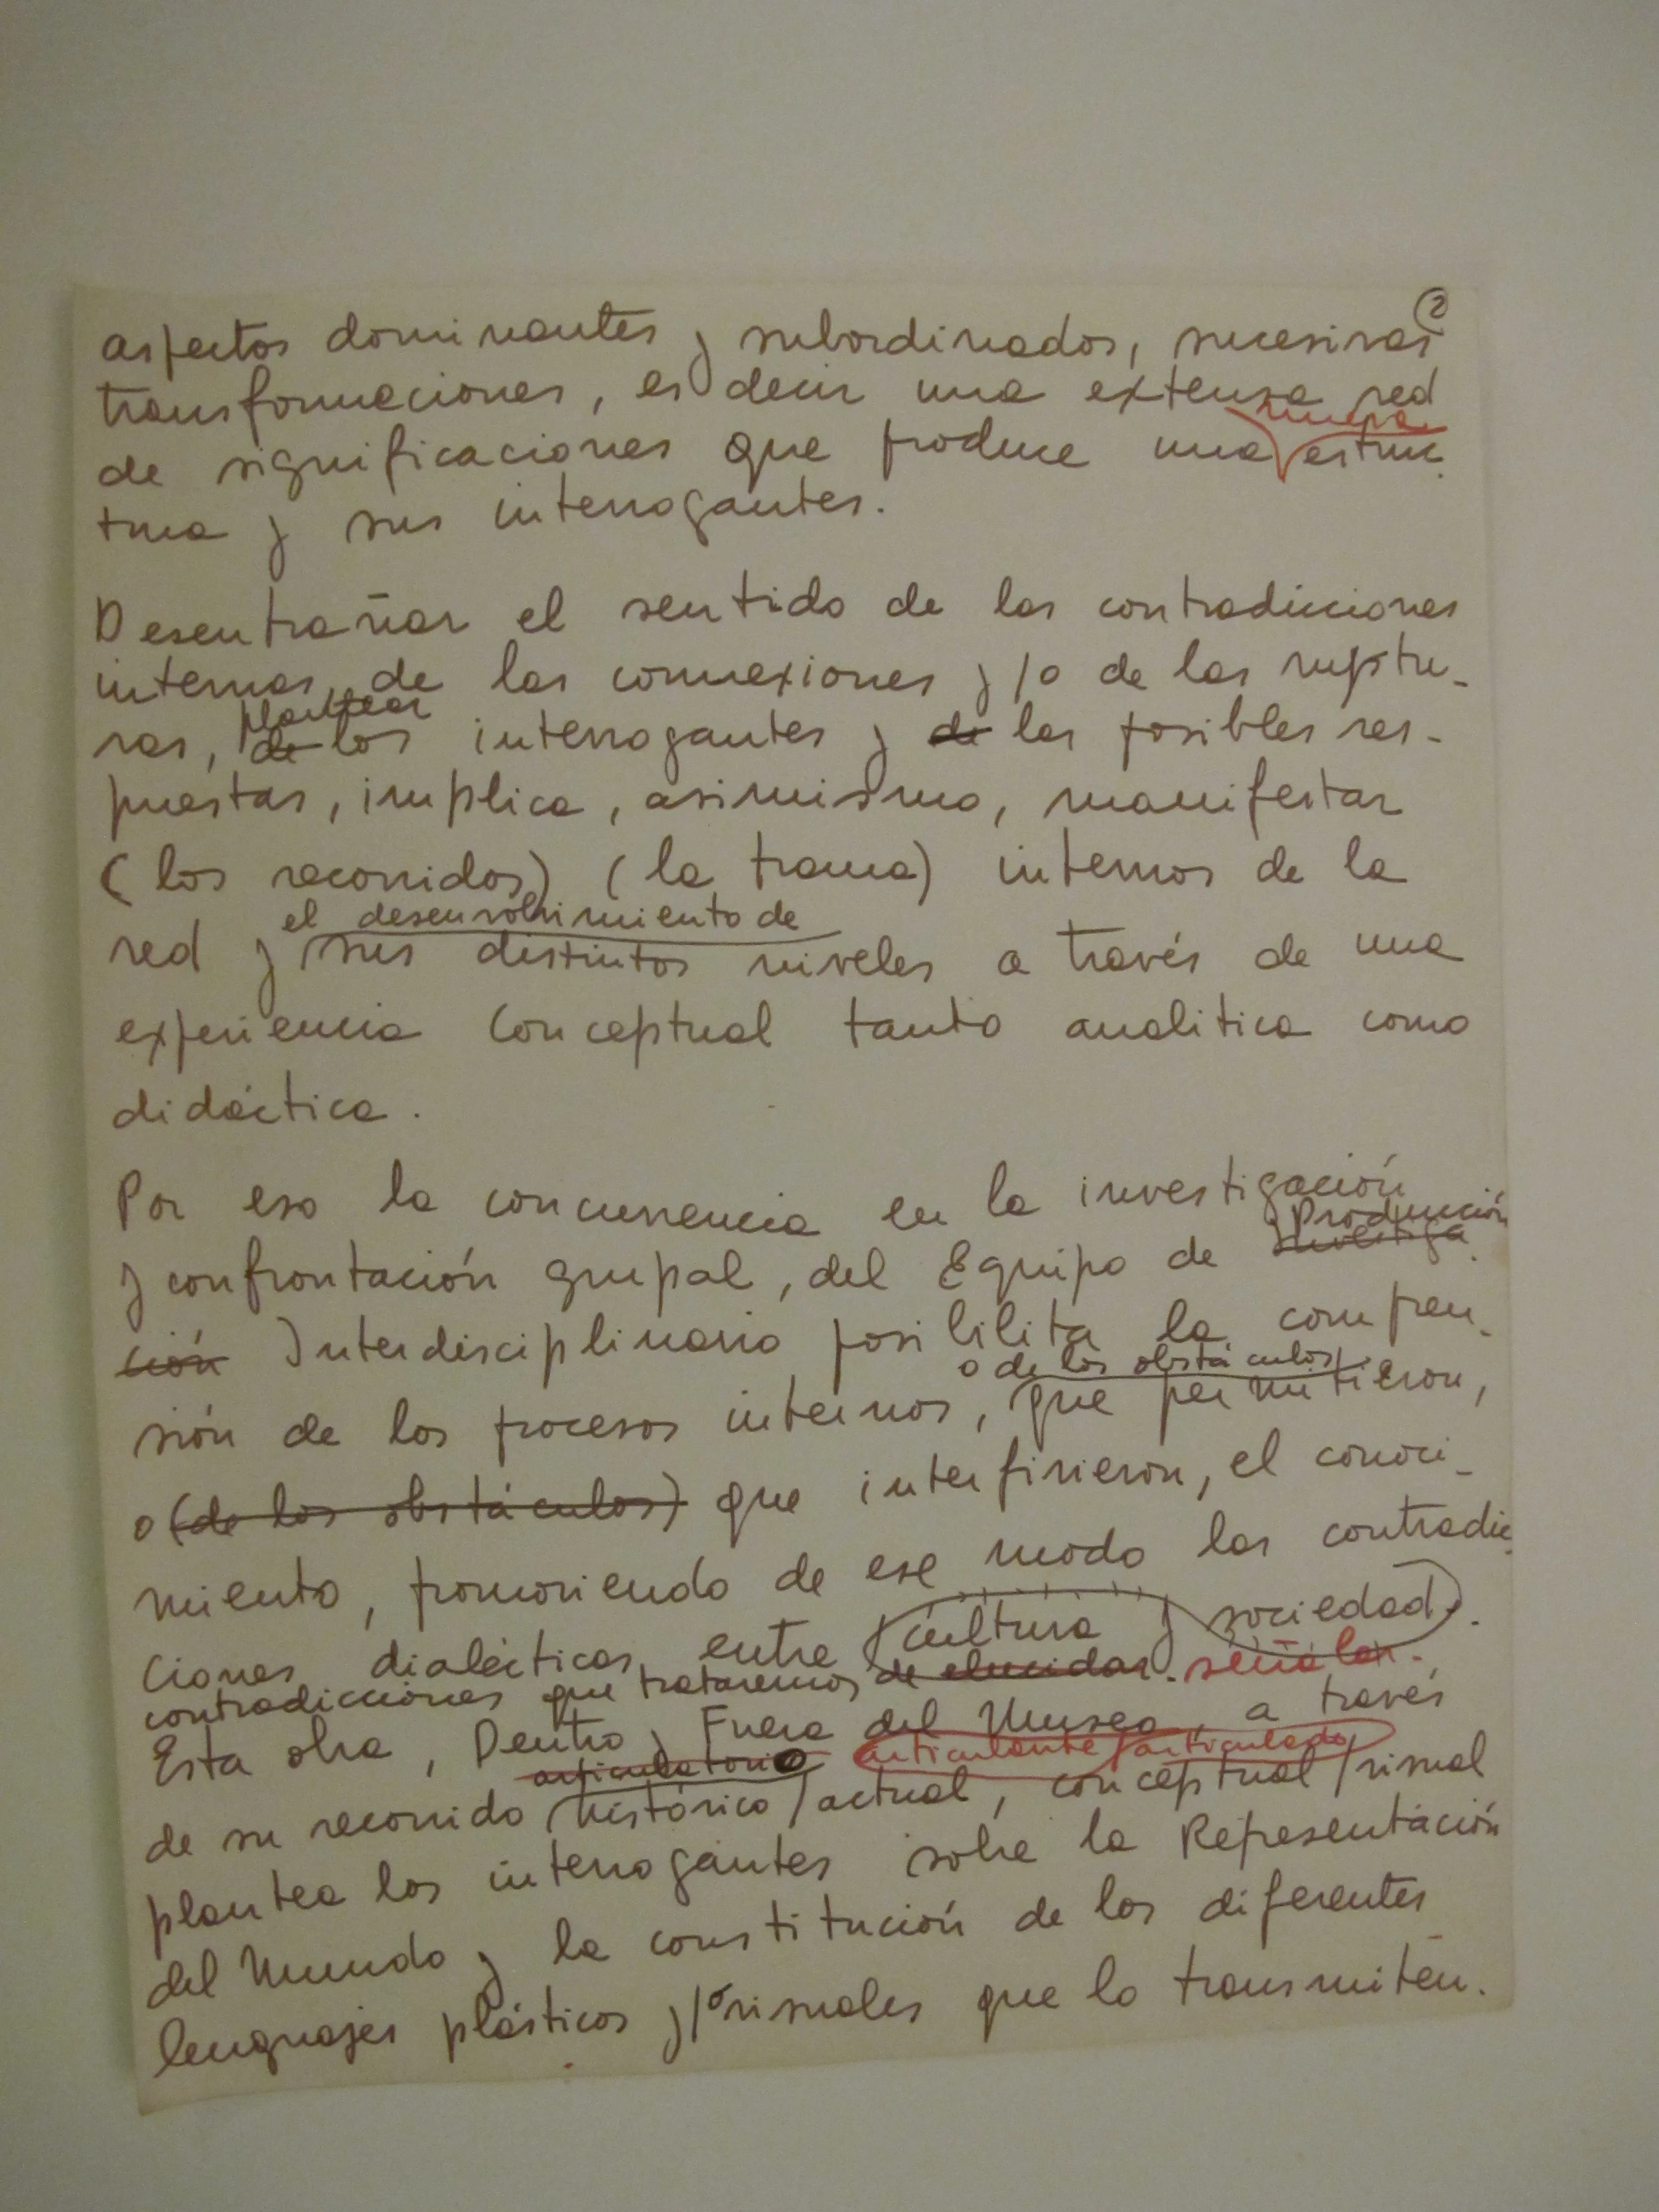 2
aspectos dominantes y subordinados, sucesivas
transformaciones, es decir una extensa red
nueva
de significaciones que produce una estruc
tura y sus interrogantes.
Desentrañar el sentido de las contradicciones
internas, de las connexiones y/o de las ruptu-
plantear
ras, de los interrogantes y de las posibles res-
puestas, implica, asimismo, manifestar
(los recorridos) (la trama) internos de la
el desenvolvimiento de
red y sus distintos niveles a través de una
experiencia conceptual tanto analitica como
didáctica.
Por eso la concurrencia en la investigación
Producción
y confrontación grupal, del Equipo de Investiga
ción Interdisciplinario posibilita la compren-
o de los obstáculos
sión de los procesos internos, que permitieron,
o (de los obstáculos) que interfirieron, el conoci-
miento, promoviendo de ese modo las contradic
ciones dialécticas entre cultura y sociedad.
contradicciones que trataremos de elucidar. señalar.
Esta obra, Dentro y Fuera del Museo, a través
articulatorio articulante/articulado
de su recorrido histórico/actual, conceptual/visual
plantea los interrogantes sobre la Representación
del Mundo y la constitución de los diferentes
lenguajes plásticos y/o visuales que lo transmiten.